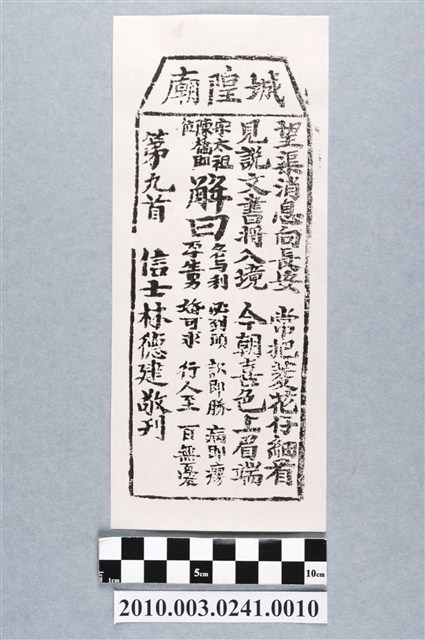 城隍廟
望渠消息向長安　常把菱花仔細看
見說文書將入境　今朝喜色上眉端
宋太祖
陳橋即位
解曰
名与利　必到頭　訟即勝　病即瘳
孕生男　婚可求　行人至　百無憂
第九首　信士林德建敬刊
1cm 5cm 10cm
2010.003.0241.0010